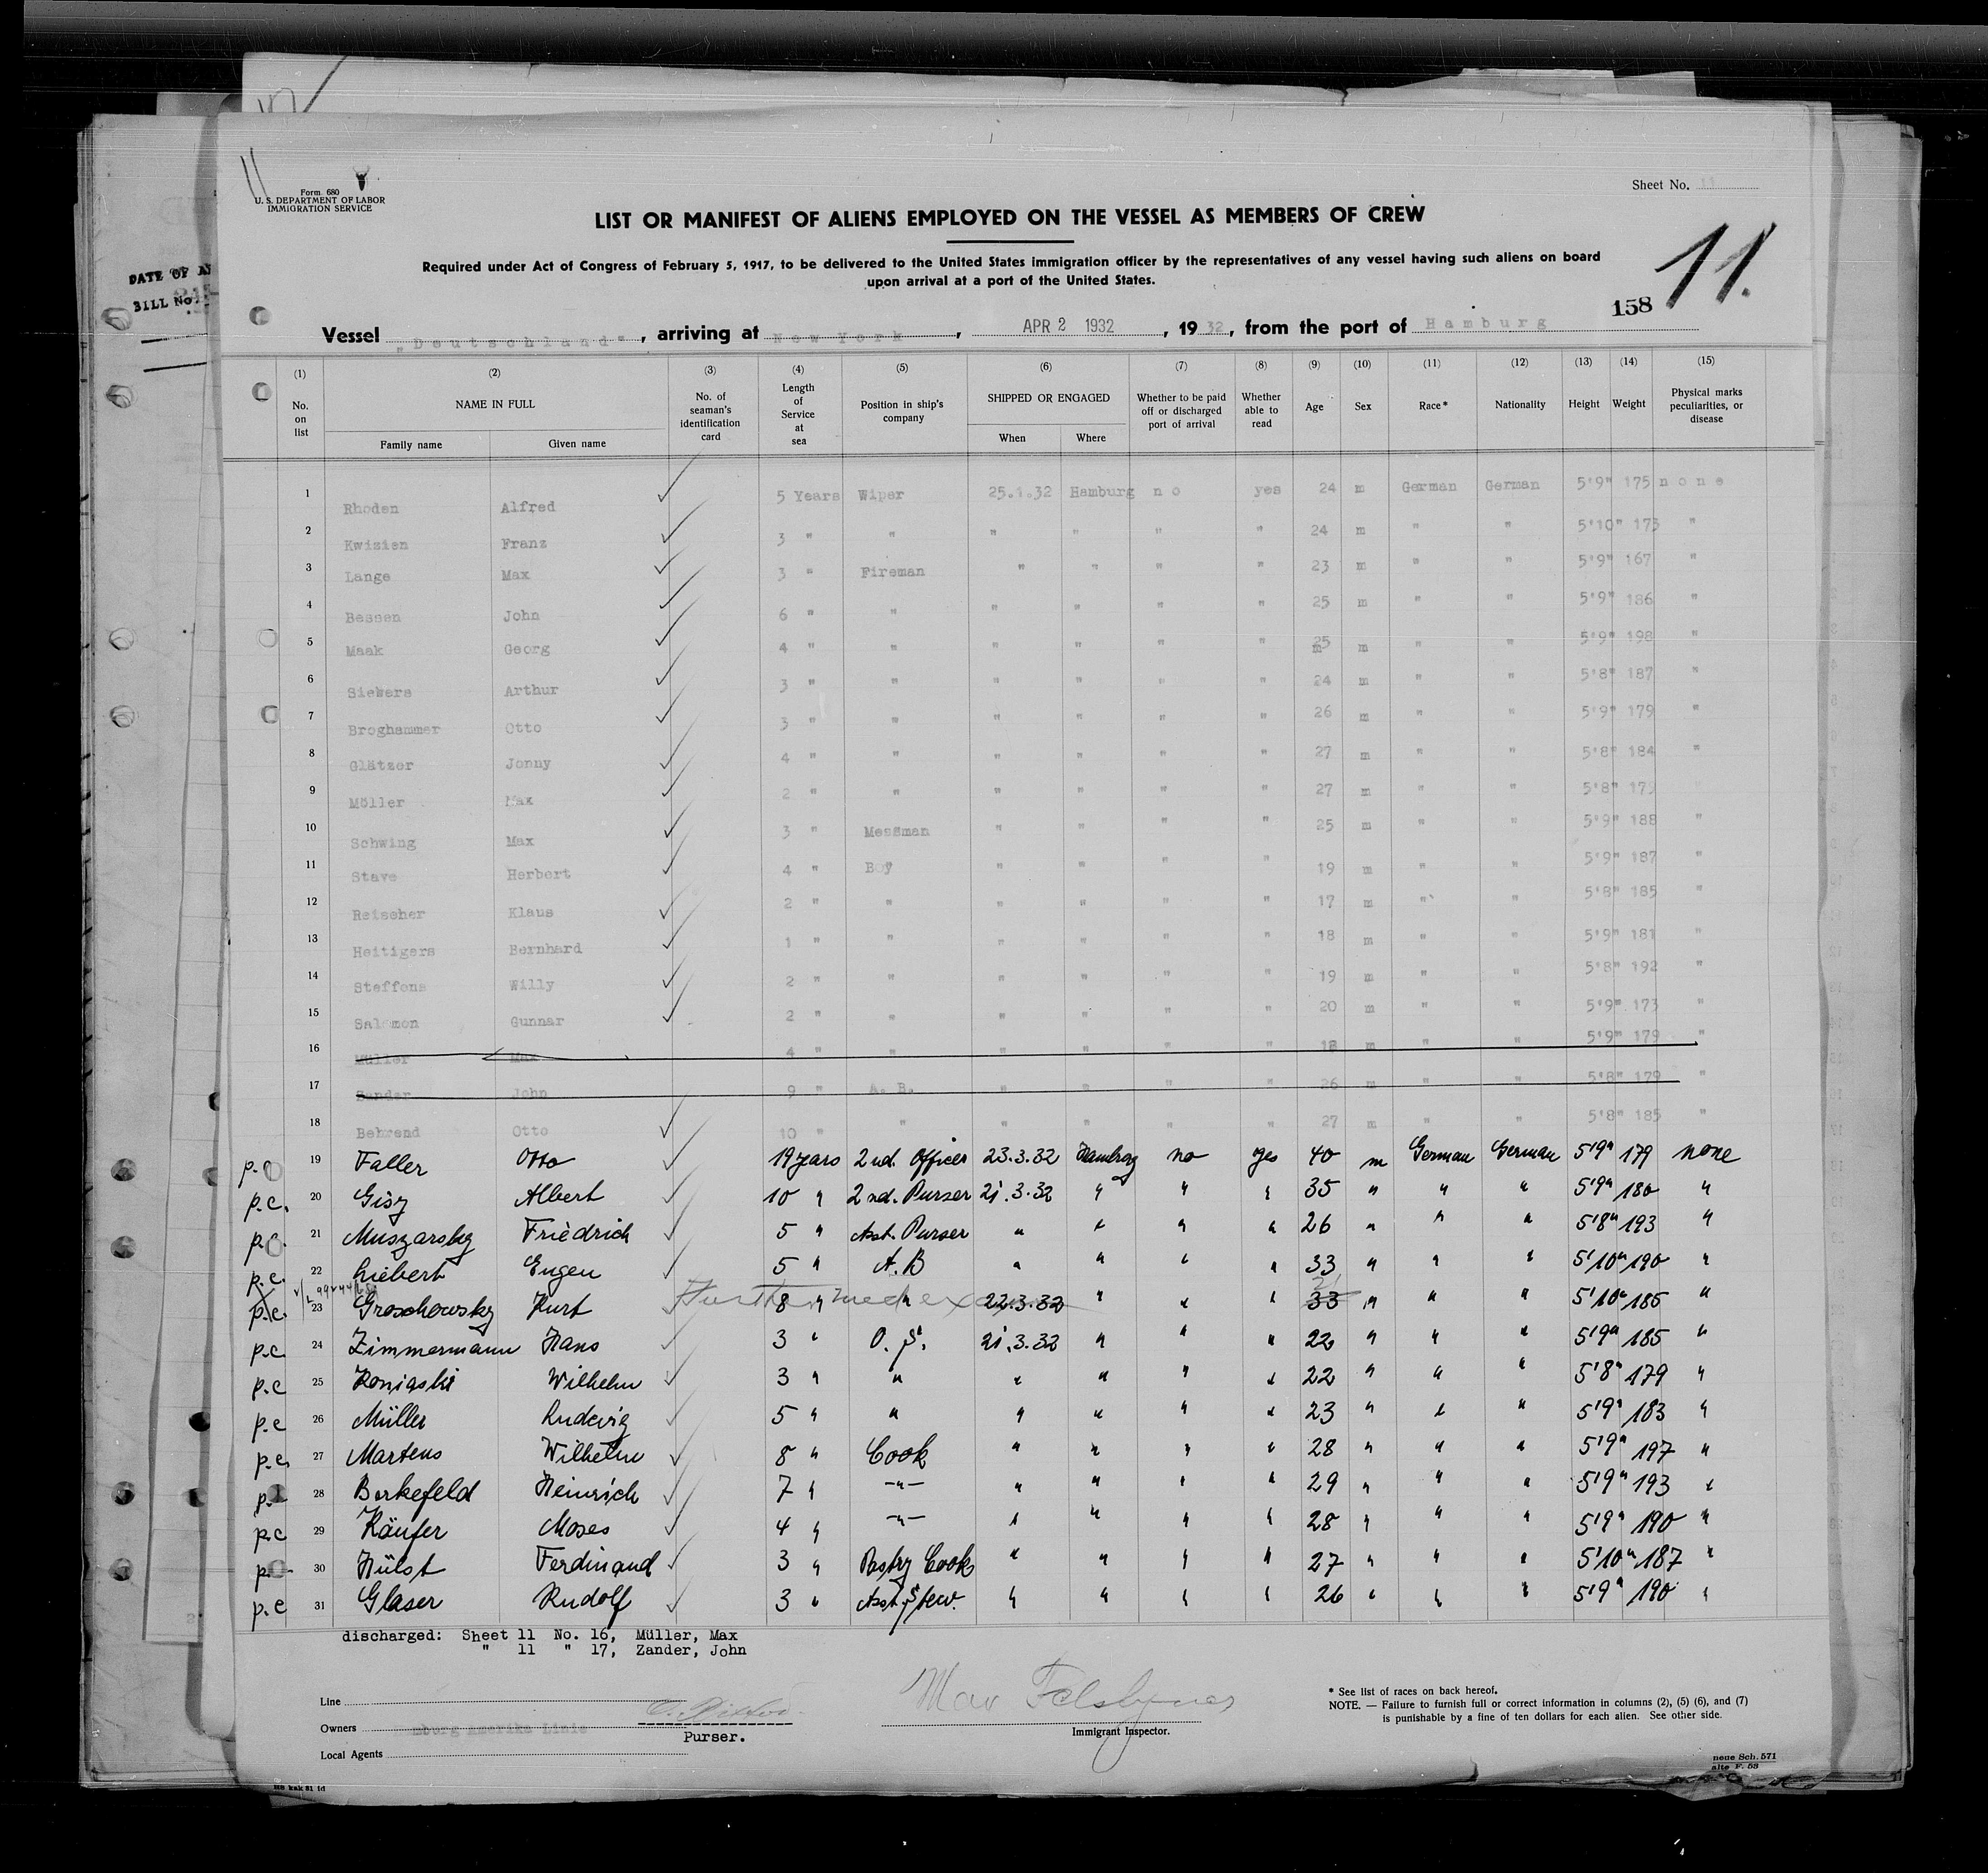 11
Form 680
U. S. DEPARTMENT OF LABOR
IMMIGRATION SERVICE
Sheet No. 11
LIST OR MANIFEST OF ALIENS EMPLOYED ON THE VESSEL AS MEMBERS OF CREW
11.
Required under Act of Congress of February 5, 1917, to be delivered to the United States immigration officer by the representatives of any vessel having such aliens on board
upon arrival at a port of the United States.
DATE OF
BILL No.
158
Vessel „Deutschland", arriving at New York, APR 2 1932, 1932, from the port of Hamburg
(1) (2) (3) (4) (5) (6) (7) (8) (9) (10) (11) (12) (13) (14) (15)
No. on list NAME IN FULL Family name Given name No. of seaman's identification card Length of Service at sea Position in ship's company SHIPPED OR ENGAGED When Where Whether to be paid off or discharged port of arrival Whether able to read Age Sex Race* Nationality Height Weight Physical marks peculiarities, or disease
1 Rhoden Alfred 5 Years Wiper 25.1.32 Hamburg no yes 24 m German German 5'9" 175 none
2 Kwizien Franz 3 " " " " " " 24 m " " 5'10" 173 "
3 Lange Max 3 " Fireman " " " " 23 m " " 5'9" 167 "
4 Bessen John 6 " " " " " " 25 m " " 5'9" 186 "
5 Maak Georg 4 " " " " " " 25 m " " 5'9" 198 "
6 Siewers Arthur 3 " " " " " " 24 m " " 5'8" 187 "
7 Broghammer Otto 3 " " " " " " 26 m " " 5'9" 179 "
8 Glätzer Jonny 4 " " " " " " 27 m " " 5'8" 184 "
9 Möller Max 2 " " " " " " 27 m " " 5'8" 175 "
10 Schwing Max 3 " Messman " " " " 25 m " " 5'9" 188 "
11 Stave Herbert 4 " Boy " " " " 19 m " " 5'9" 187 "
12 Reischer Klaus 2 " " " " " " 17 m " " 5'8" 185 "
13 Heitigers Bernhard 1 " " " " " " 18 m " " 5'9" 181 "
14 Steffens Willy 2 " " " " " " 19 m " " 5'8" 192 "
15 Salomon Gunnar 2 " " " " " " 20 m " " 5'9" 173 "
16 Müller Max 4 " " " " " " 18 m " " 5'9" 179 "
17 Zander John 9 " A. B. " " " " 26 m " " 5'8" 179 "
18 Behrend Otto 10 " " " " " " 27 m " " 5'8" 185 "
p.c 19 Faller Otto 19 years 2nd. Officer 23.3.32 Hamburg no yes 40 m German German 5'9" 179 none
p.c. 20 Gisy Albert 10 " 2nd. Purser 21.3.32 " " " 35 " " " 5'9" 180 "
p.c. 21 Muszarsky Friedrich 5 " Asst. Purser " " " " 26 " " " 5'8" 193 "
p.c. 22 Liebert Eugen 5 " A.B " " " " 33 " " " 5'10" 190 "
p.c. 23 Groschowsky Kurt 8 " " 22.3.32 " " " 33 21 " " " 5'10" 186 "
Further med exam
p.c 24 Zimmermann Hans 3 " O. S. 21.3.32 " " " 22 " " " 5'9" 185 "
p.c 25 Koniaski Wilhelm 3 " " " " " " 22 " " " 5'8" 179 "
p.c 26 Müller Ludewig 5 " " " " " " 23 " " " 5'9" 183 "
p.c. 27 Martens Wilhelm 8 " Cook " " " " 28 " " " 5'9" 197 "
p. 28 Berkefeld Heinrich 7 " -"- " " " " 29 " " " 5'9" 193 "
p.c 29 Käufer Moses 4 " -"- " " " " 28 " " " 5'9" 190 "
p. 30 Hülst Ferdinand 3 " Pastry Cook " " " " 27 " " " 5'10" 187 "
p.c 31 Glaser Rudolf 3 " Asst. Stew. " " " " 26 " " " 5'9" 190 "
discharged: Sheet 11 No. 16, Müller, Max
" 11 " 17, Zander, John
Line
Owners mburg Amerika Linie
Local Agents
Purser.
Immigrant Inspector.
* See list of races on back hereof.
NOTE. — Failure to furnish full or correct information in columns (2), (5) (6), and (7)
is punishable by a fine of ten dollars for each alien. See other side.
neue Sch. 571
alte F. 58